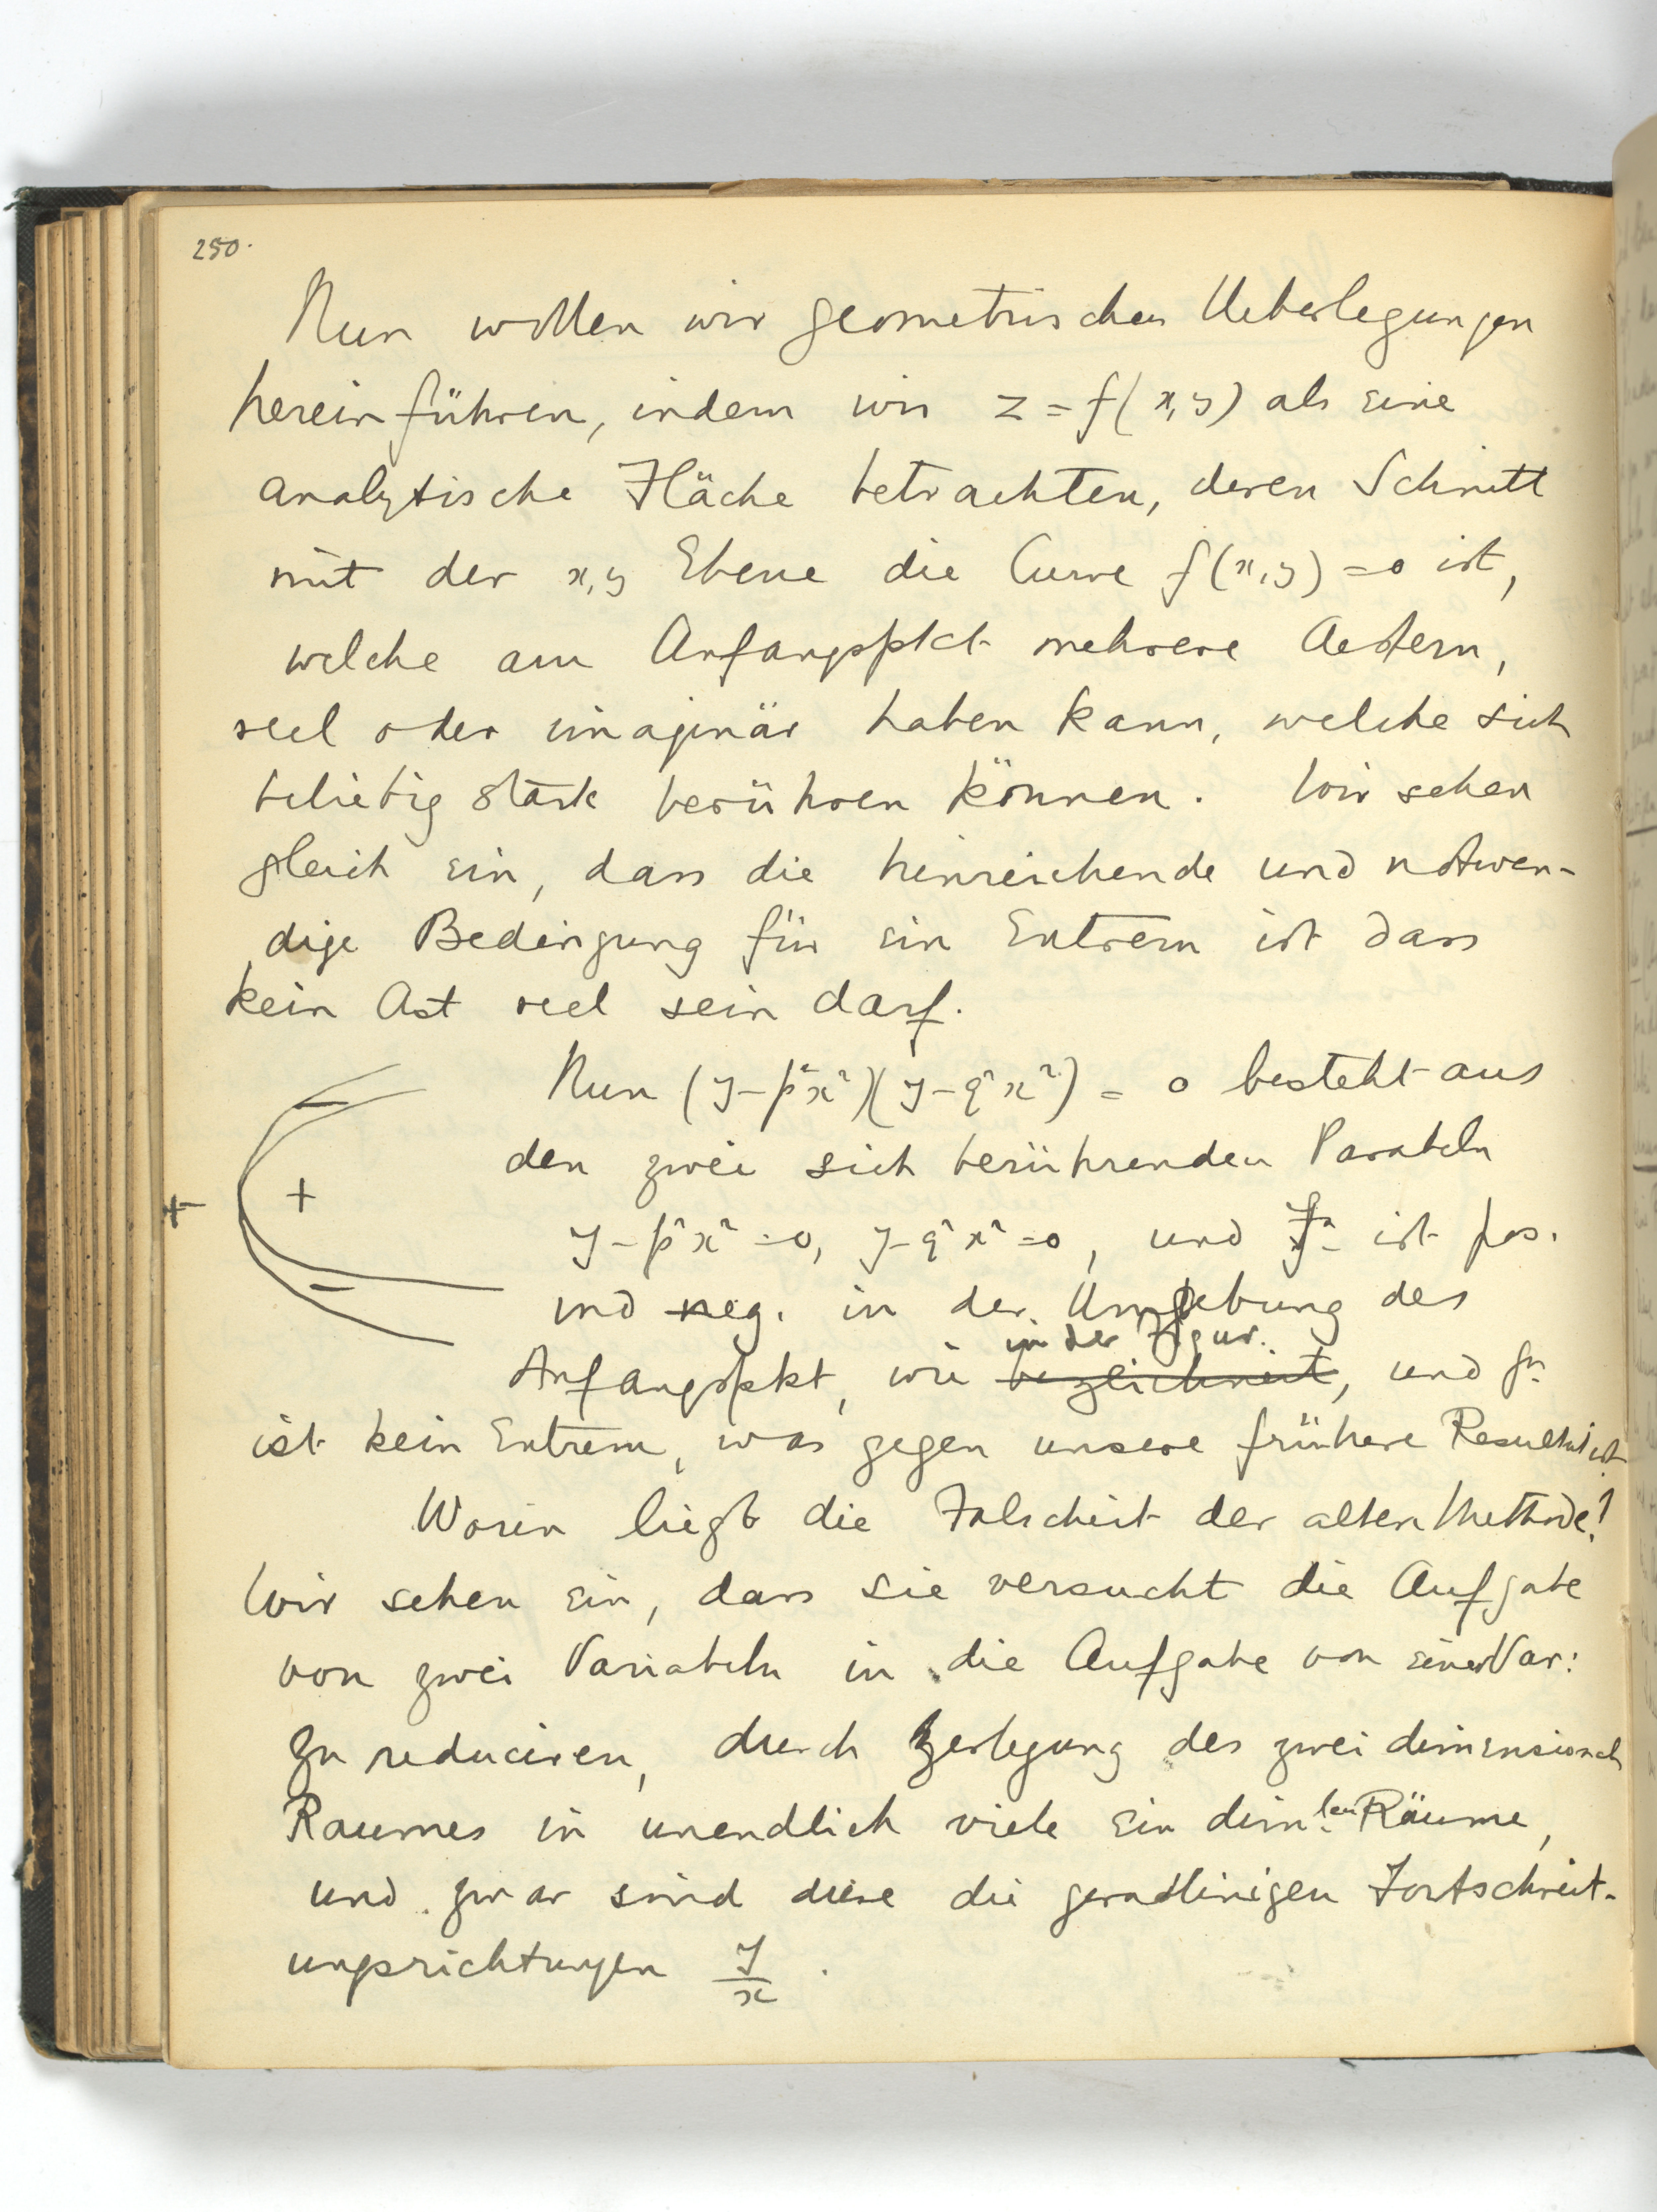 250.
Nun wollen wir geometrischen Ueberlegungen
hereinführen, indem wir z = f(x,y) als eine
analytische Fläche betrachten, deren Schnitt
mit der x,y Ebene die Curve f(x,y) = 0 ist,
welche am Anfangspkt mehrere Aestern,
reel oder imaginär haben kann, welche sich
beliebig stark berühren können. Wir sehen
gleich ein, dass die hinreichende und notwen-
dige Bedingung für ein Extrem ist dass
kein Ast reel sein darf.
Nun (y-p²x²)(y-q²x²) = 0 besteht aus
den zwei sich berührenden Parabeln
y-p²x²=0, y-q²x²=0, und ist pos.
und neg. in der Umgebung des
in der Figur.
Anfangspkt, wie bezeichnet, und fn
ist kein Extrem, was gegen unsere frühere Resultat ist
Worin liegt die Falscheit der alten Methode?
Wir sehen ein, dass sie versucht die Aufgabe
von zwei Variabeln in die Aufgabe von einer Var:
zu reduciren, durch Zerlegung des zwei dimensional
Raumes in unendlich viele ein dim.len Räume,
und zwar sind diese die geradlinigen Fortschreit-
ungsrichtungen y/x.
+ + − −